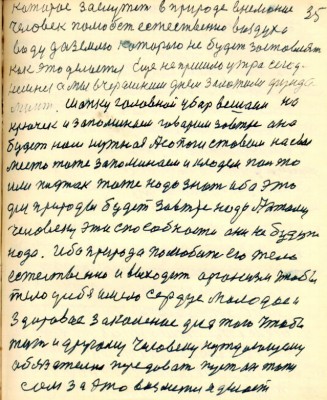 35
которое замутит в природе внимание
человек полюбит естественно воздух
воду да землю которую не будет заставлять
как это делается Еще не пришло утра сегод
мы вчерашним днем
шапку головной убор вешаем на
крючек и запоминаем говарим завтре она
будет нам нужная А сопоги ставим на свое
место тоже запоминаем и кладем пальто
или пиджак тоже надо знать ибо это
для природы будет завтре надо А такому
человеку эти способности они не будут
надо. Ибо природа полюбит его тело
естественно и выходит организм чтобы
тело у себя имело сердце молодое и
здоровае закаленое для того чтобы
тут и другому человеку нуждающему
обязательно предовать путем таким
сам за это возметься делает